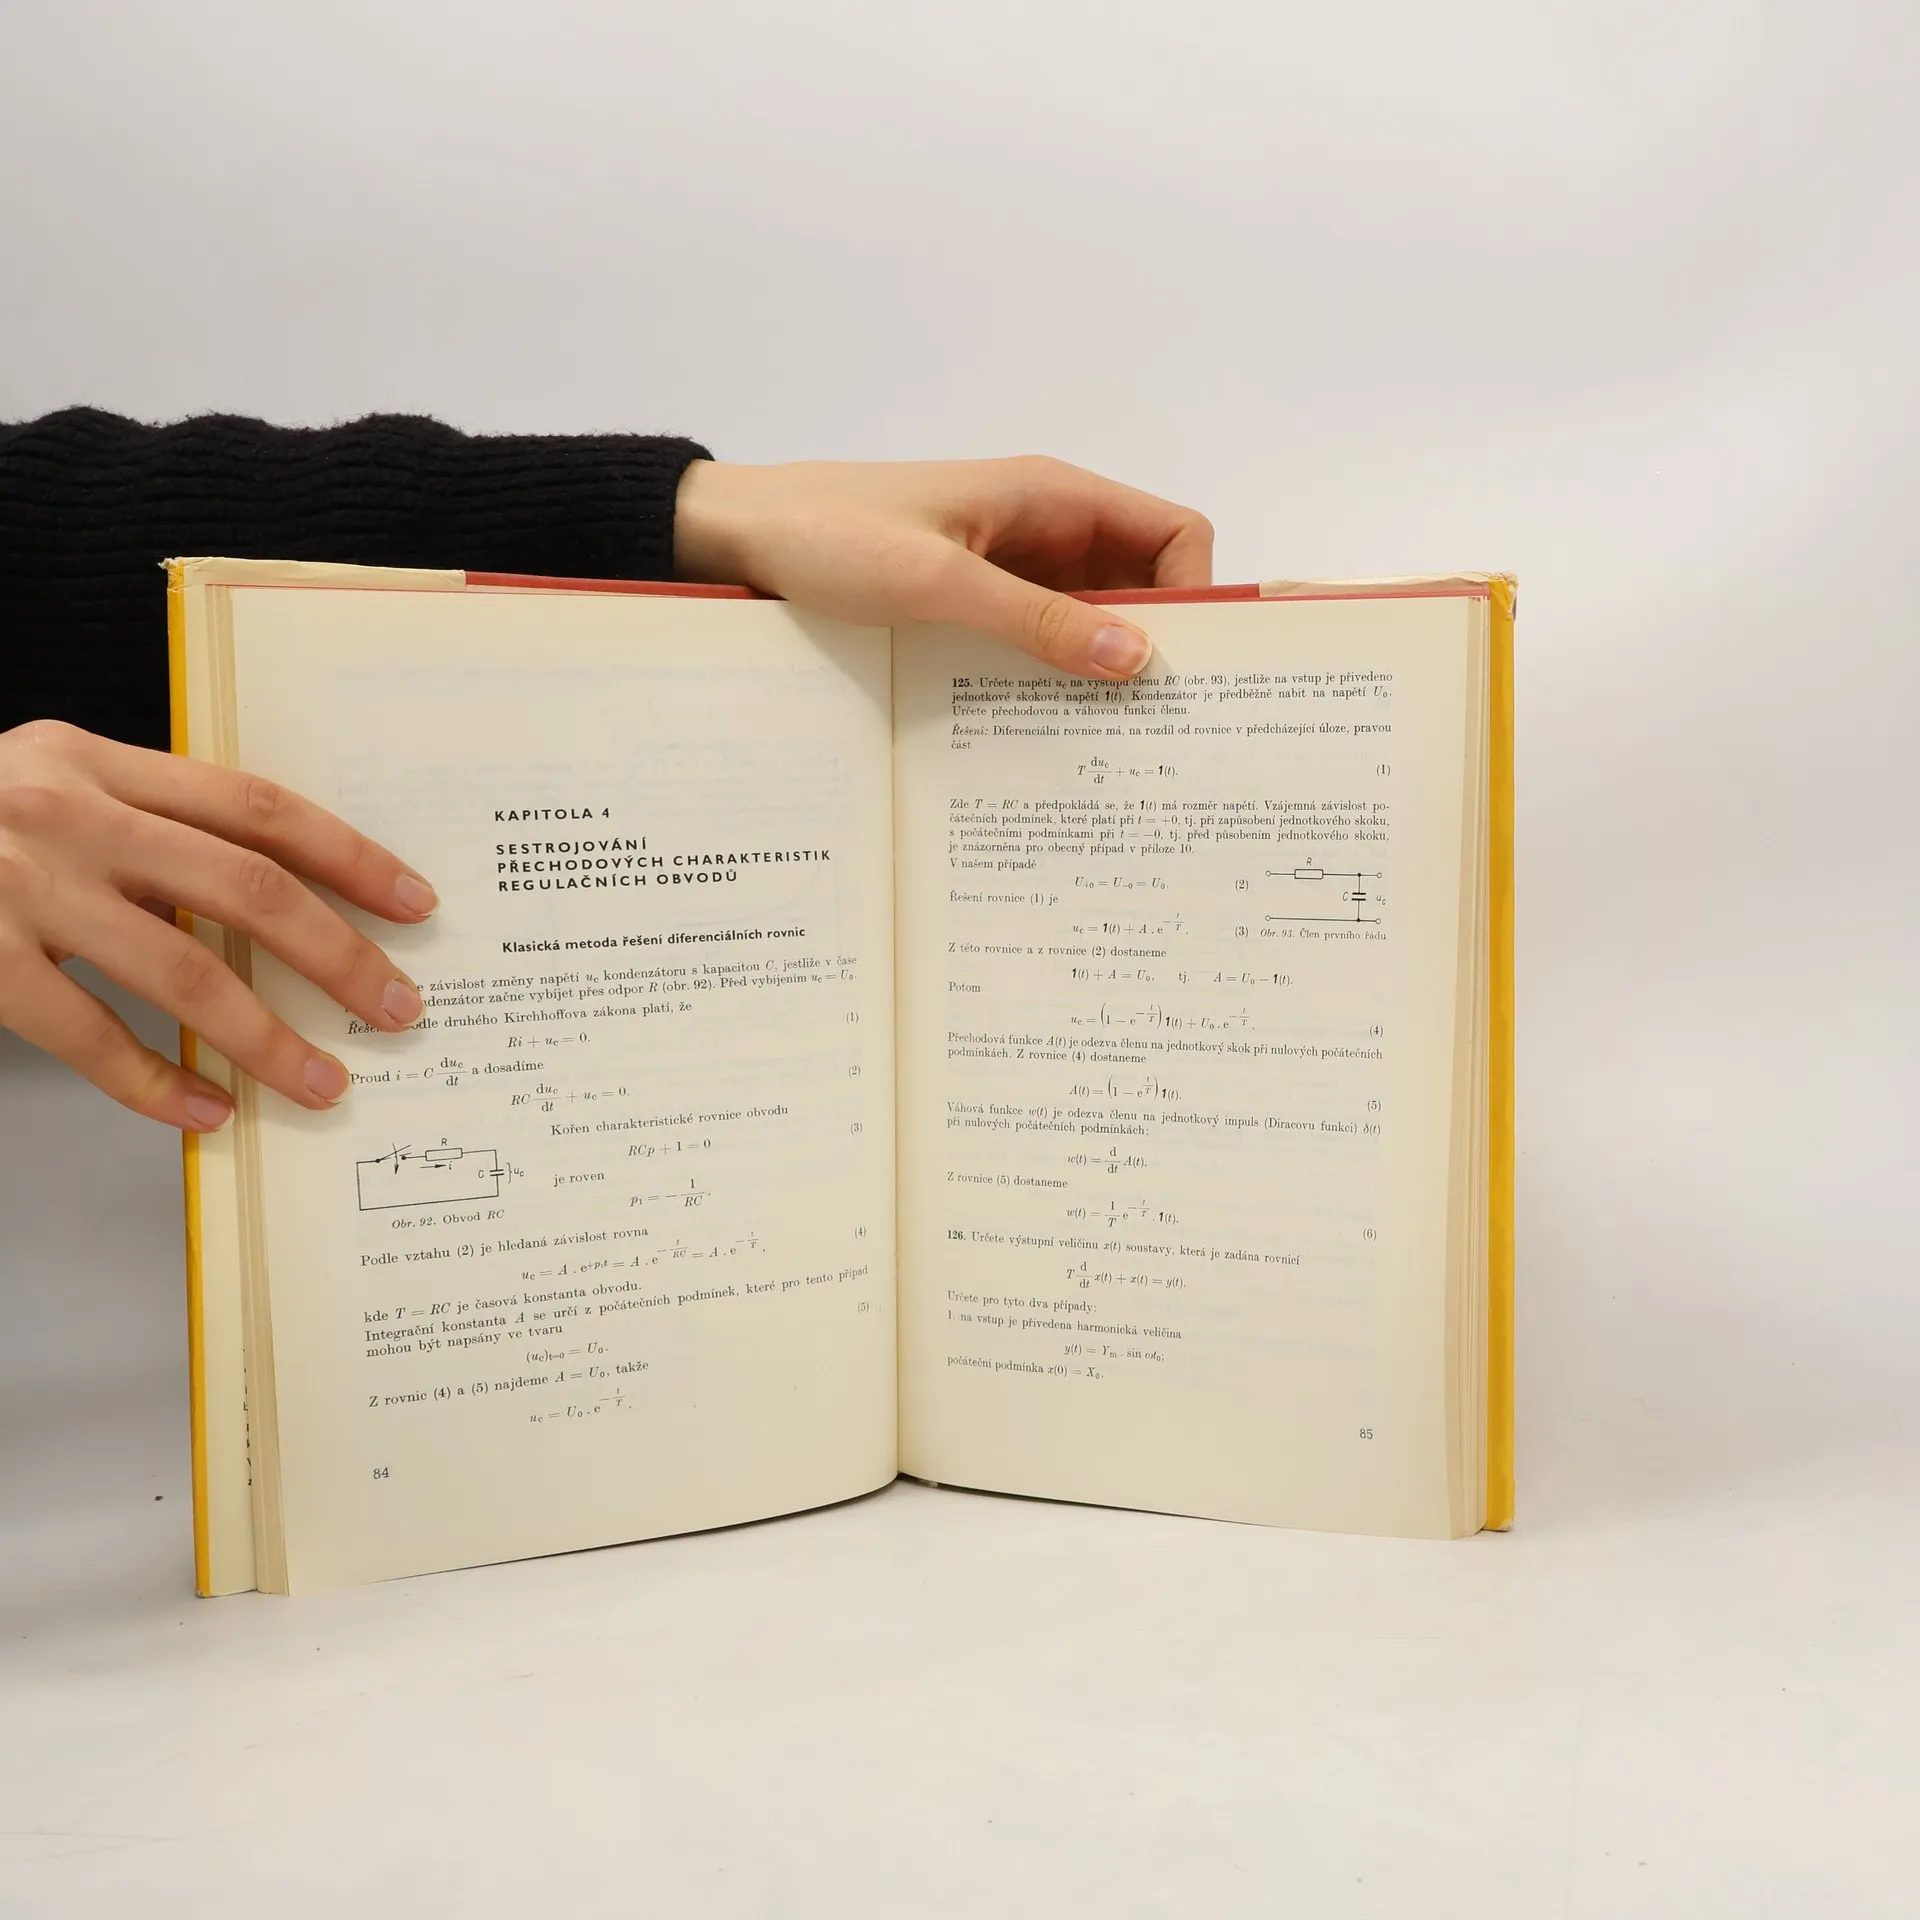 KAPITOLA 4
SESTROJOVÁNÍ
PŘECHODOVÝCH CHARAKTERISTIK
REGULAČNÍCH OBVODŮ
Klasická metoda řešení diferenciálních rovnic
závislost změny napětí u_c kondenzátoru s kapacitou C, jestliže v čase
začne vybíjet přes odpor R (obr. 92). Před vybíjením u_c = U_0.
druhého Kirchhoffova zákona platí, že
Ri + u_c = 0. (1)
Proud i = C du_c/dt a dosadíme
RC du_c/dt + u_c = 0. (2)
Kořen charakteristické rovnice obvodu
RCp + 1 = 0 (3)
je roven
p_1 = − 1/RC.
R
i
C
u_c
Obr. 92. Obvod RC
Podle vztahu (2) je hledaná závislost rovna
u_c = A . e^{+p_1t} = A . e^{−t/RC} = A . e^{−t/T}, (4)
kde T = RC je časová konstanta obvodu.
Integrační konstanta A se určí z počátečních podmínek, které pro tento případ
mohou být napsány ve tvaru
(u_c)_{t=0} = U_0. (5)
Z rovnic (4) a (5) najdeme A = U_0, takže
u_c = U_0 . e^{−t/T}.
84
125. Určete napětí u_c na výstupu členu RC (obr. 93), jestliže na vstup je přivedeno
jednotkové skokové napětí 1(t). Kondenzátor je předběžně nabit na napětí U_0.
Určete přechodovou a váhovou funkci členu.
Řešení: Diferenciální rovnice má, na rozdíl od rovnice v předcházející úloze, pravou
část
T du_c/dt + u_c = 1(t). (1)
Zde T = RC a předpokládá se, že 1(t) má rozměr napětí. Vzájemná závislost po-
čátečních podmínek, které platí při t = +0, tj. při zapůsobení jednotkového skoku,
s počátečními podmínkami při t = −0, tj. před působením jednotkového skoku,
je znázorněna pro obecný případ v příloze 10.
V našem případě
U_{+0} = U_{−0} = U_0. (2)
Řešení rovnice (1) je
u_c = 1(t) + A . e^{−t/T}. (3)
R
C
u_c
Obr. 93. Člen prvního řádu
Z této rovnice a z rovnice (2) dostaneme
1(t) + A = U_0, tj. A = U_0 − 1(t).
Potom
u_c = (1 − e^{−t/T}) 1(t) + U_0 . e^{−t/T}. (4)
Přechodová funkce A(t) je odezva členu na jednotkový skok při nulových počátečních
podmínkách. Z rovnice (4) dostaneme
A(t) = (1 − e^{t/T}) 1(t). (5)
Váhová funkce w(t) je odezva členu na jednotkový impuls (Diracovu funkci) δ(t)
při nulových počátečních podmínkách;
w(t) = d/dt A(t).
Z rovnice (5) dostaneme
w(t) = 1/T e^{−t/T} . 1(t). (6)
126. Určete výstupní veličinu x(t) soustavy, která je zadána rovnicí
T d/dt x(t) + x(t) = y(t).
Určete pro tyto dva případy:
1. na vstup je přivedena harmonická veličina
y(t) = Y_m . sin ωt_0;
počáteční podmínka x(0) = X_0.
85